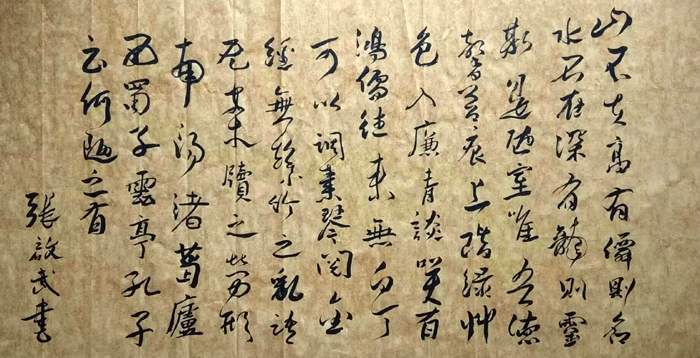 山不在高有僊則名
水不在深有龍則靈
斯是陋室唯吾德
馨苔痕上階綠艸
色入廉青談咲有
鴻儒往来無白丁
可以調素琴閱金
經無絲竹之亂耳
无案牘之勞形
南陽諸葛廬
西蜀子雲亭孔子
云何陋之有
張啟武書